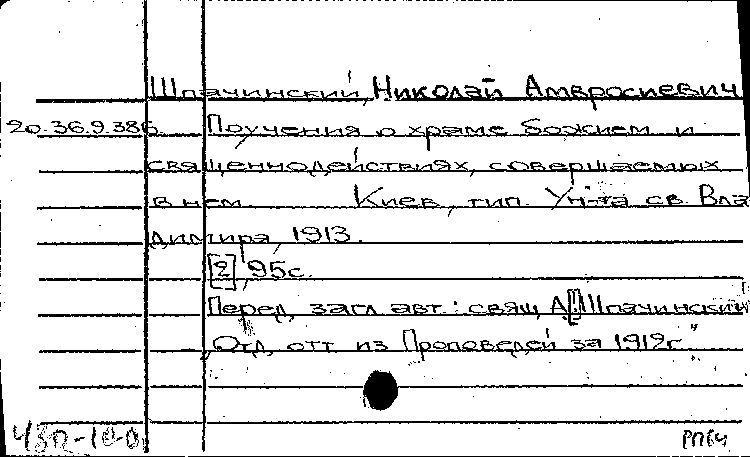 Шпачинский, Николай Амвросиевич
20.36.9.386. Поучения о храме божием и
священнодействиях, совершаемых
в нем. Киев, тип. Ун-та св. Вла
димира, 1913.
[2], 95с.
Перед загл. авт.: свящ. А[!] Шпачинский
"Отд. отт. из Проповедей за 1912г."
РПБ4